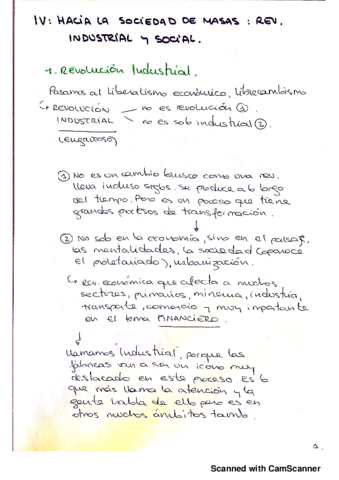 IV: HACIA LA SOCIEDAD DE MASAS: REV.
INDUSTRIAL y SOCIAL.
1. REVOLUCIÓN INDUSTRIAL.
Pasamos al liberalismo económico, librecambismo
↳ REVOLUCIÓN — no es revolución ①.
INDUSTRIAL — no es solo industrial ②.
(engañoso)
① No es un cambio brusco como una rev.
lleva incluso siglos. Se produce a lo largo
del tiempo. Pero es un proceso que tiene
grandes procesos de transformación.
↓
② No solo en la economía, sino en el paisaje,
las mentalidades, la sociedad (aparece
el proletariado), urbanización.
↳ Rev. económica que afecta a muchos
sectores, primarios, minería, industria,
transporte, comercio y muy importante
en el tema FINANCIERO.
↓
Llamamos 'industrial', porque las
fábricas van a ser un icono muy
destacado en este proceso. Es lo
que más llama la atención y la
gente habla de ello pero es en
otros muchos ámbitos tamb.
1.
Scanned with CamScanner